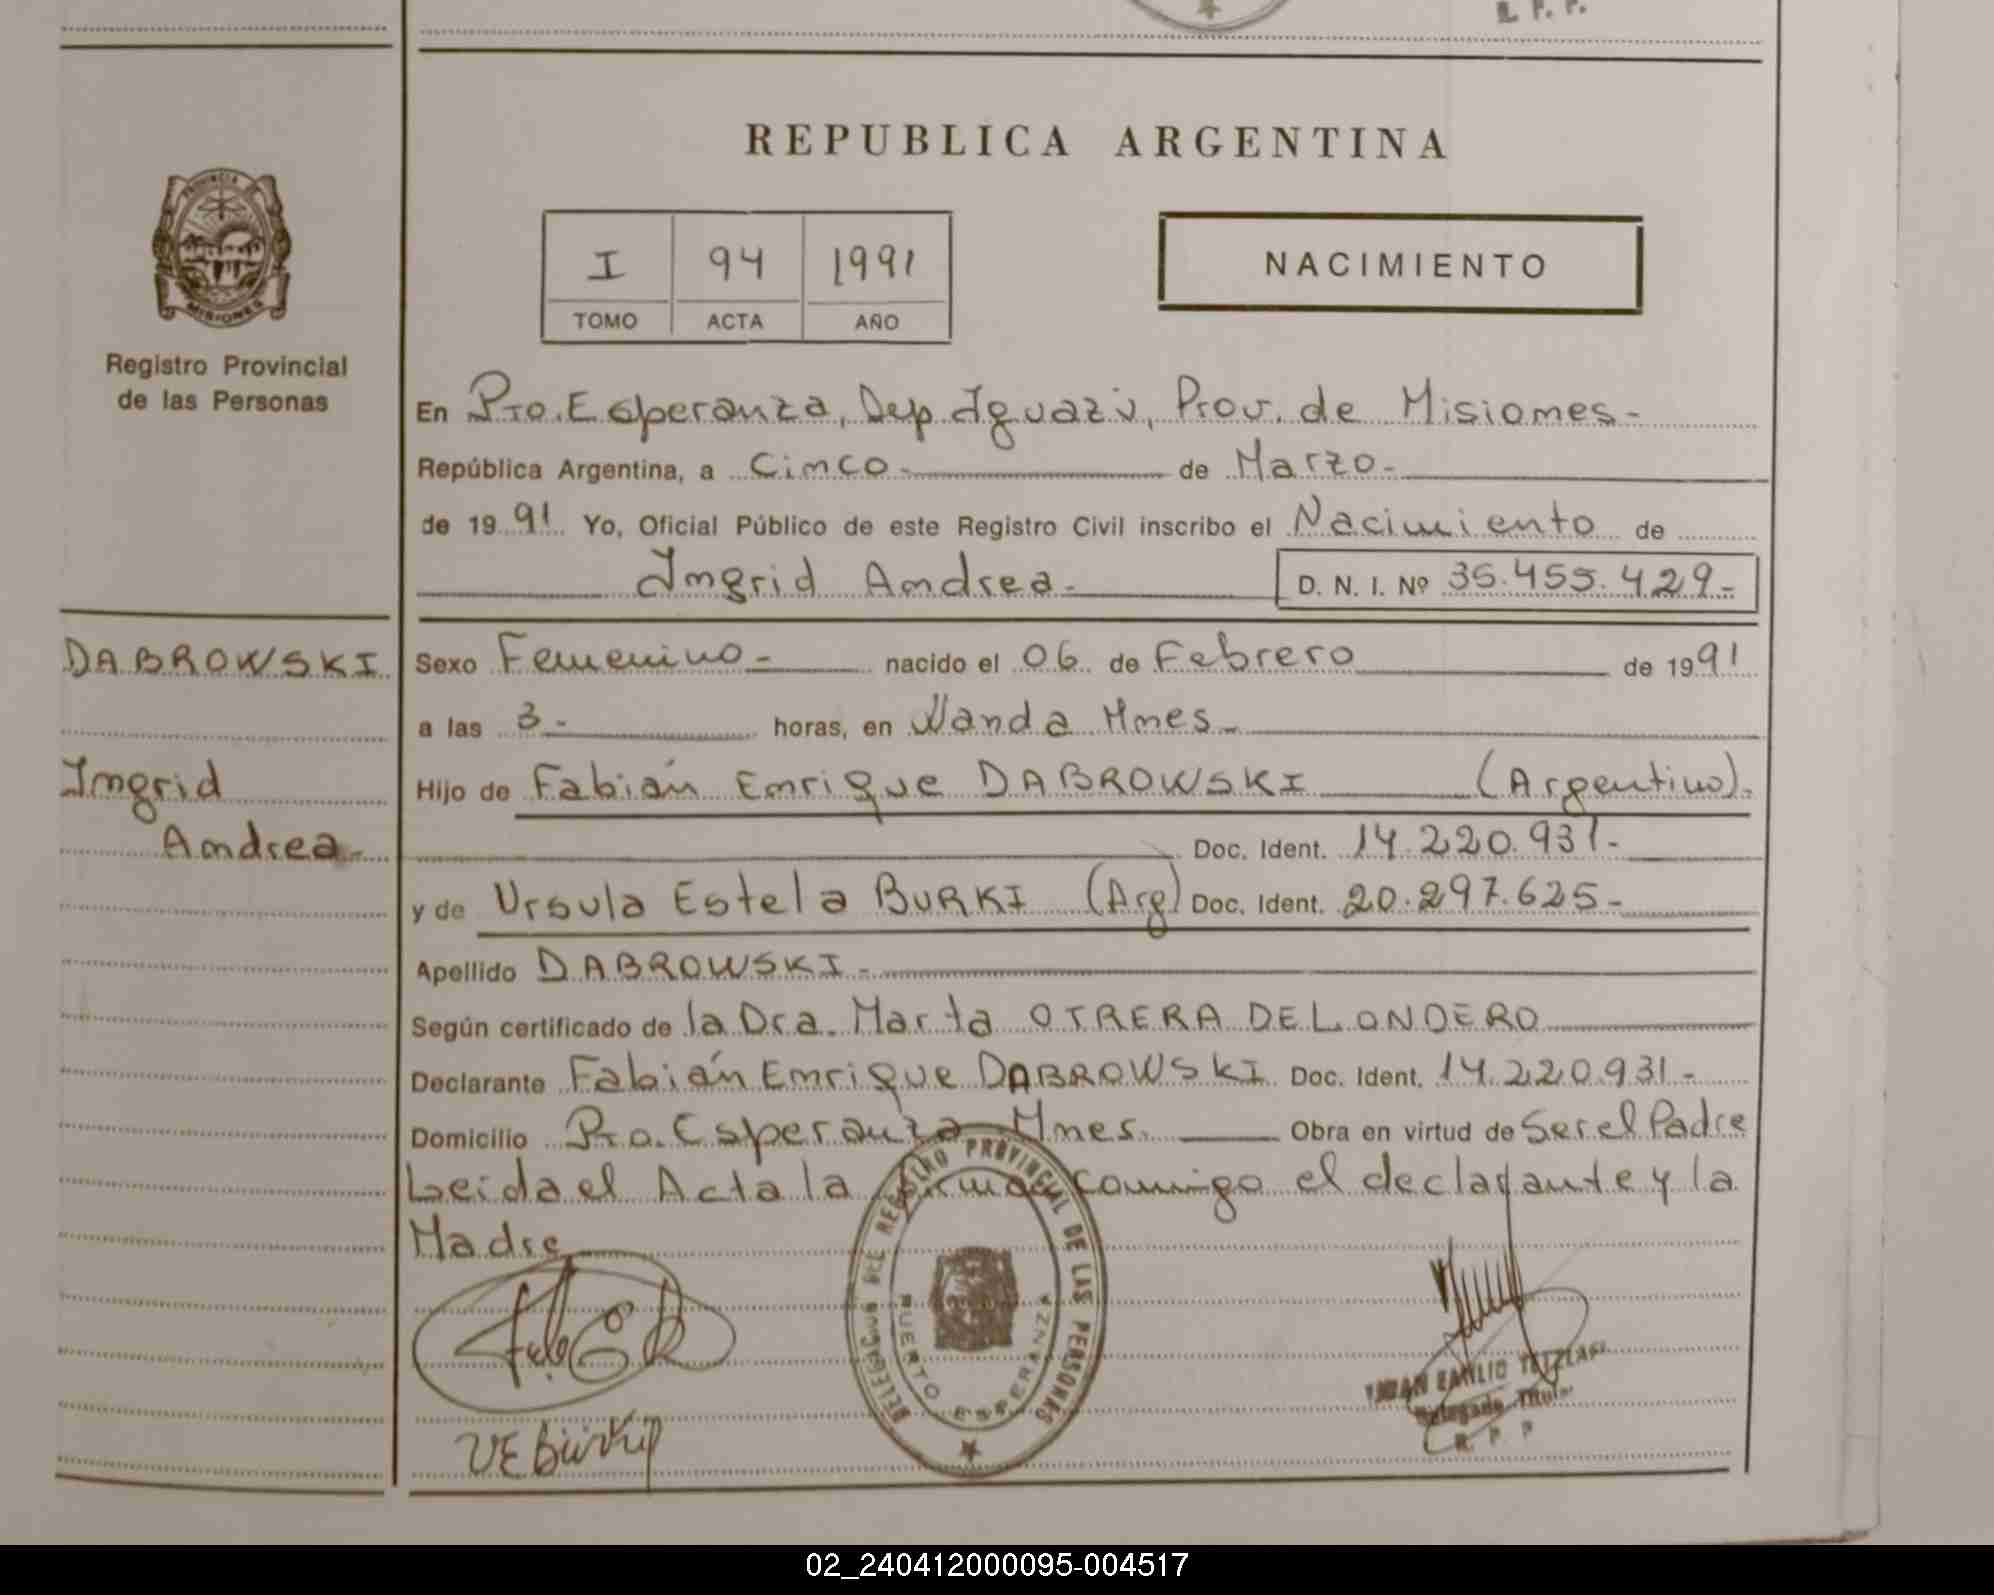 R. P. P.
REPUBLICA ARGENTINA
PROVINCIA DE
MISIONES
Registro Provincial
de las Personas
I 94 1991
TOMO ACTA AÑO
NACIMIENTO
En Pto. Esperanza, Dep. Iguazú, Prov. de Misiones-
República Argentina, a Cinco- de Marzo-
de 1991 Yo, Oficial Público de este Registro Civil inscribo el Nacimiento de
Ingrid Andrea- D. N. I. Nº 35.455.429-
DABROWSKI
Ingrid
Andrea-
Sexo Femenino- nacido el 06 de Febrero de 1991
a las 3- horas, en Wanda Mnes-
Hijo de Fabián Enrique DABROWSKI (Argentino).
Doc. Ident. 14.220.931-
y de Ursula Estela BURKI (Arg) Doc. Ident. 20.297.625-
Apellido DABROWSKI-
Según certificado de la Dra. Marta OTRERA DE LONDERO
Declarante Fabián Enrique DABROWSKI Doc. Ident. 14.220.931-
Domicilio Pto. Esperanza Mnes. Obra en virtud de Ser el Padre
Leida el Acta la firman comigo el declarante y la
Madre
DELEGACION DEL REGISTRO PROVINCIAL DE LAS PERSONAS
PUERTO ESPERANZA
UEBürki
JUAN EMILIO TETZLAFF
Delegado Titular
R. P. P.
02_240412000095-004517